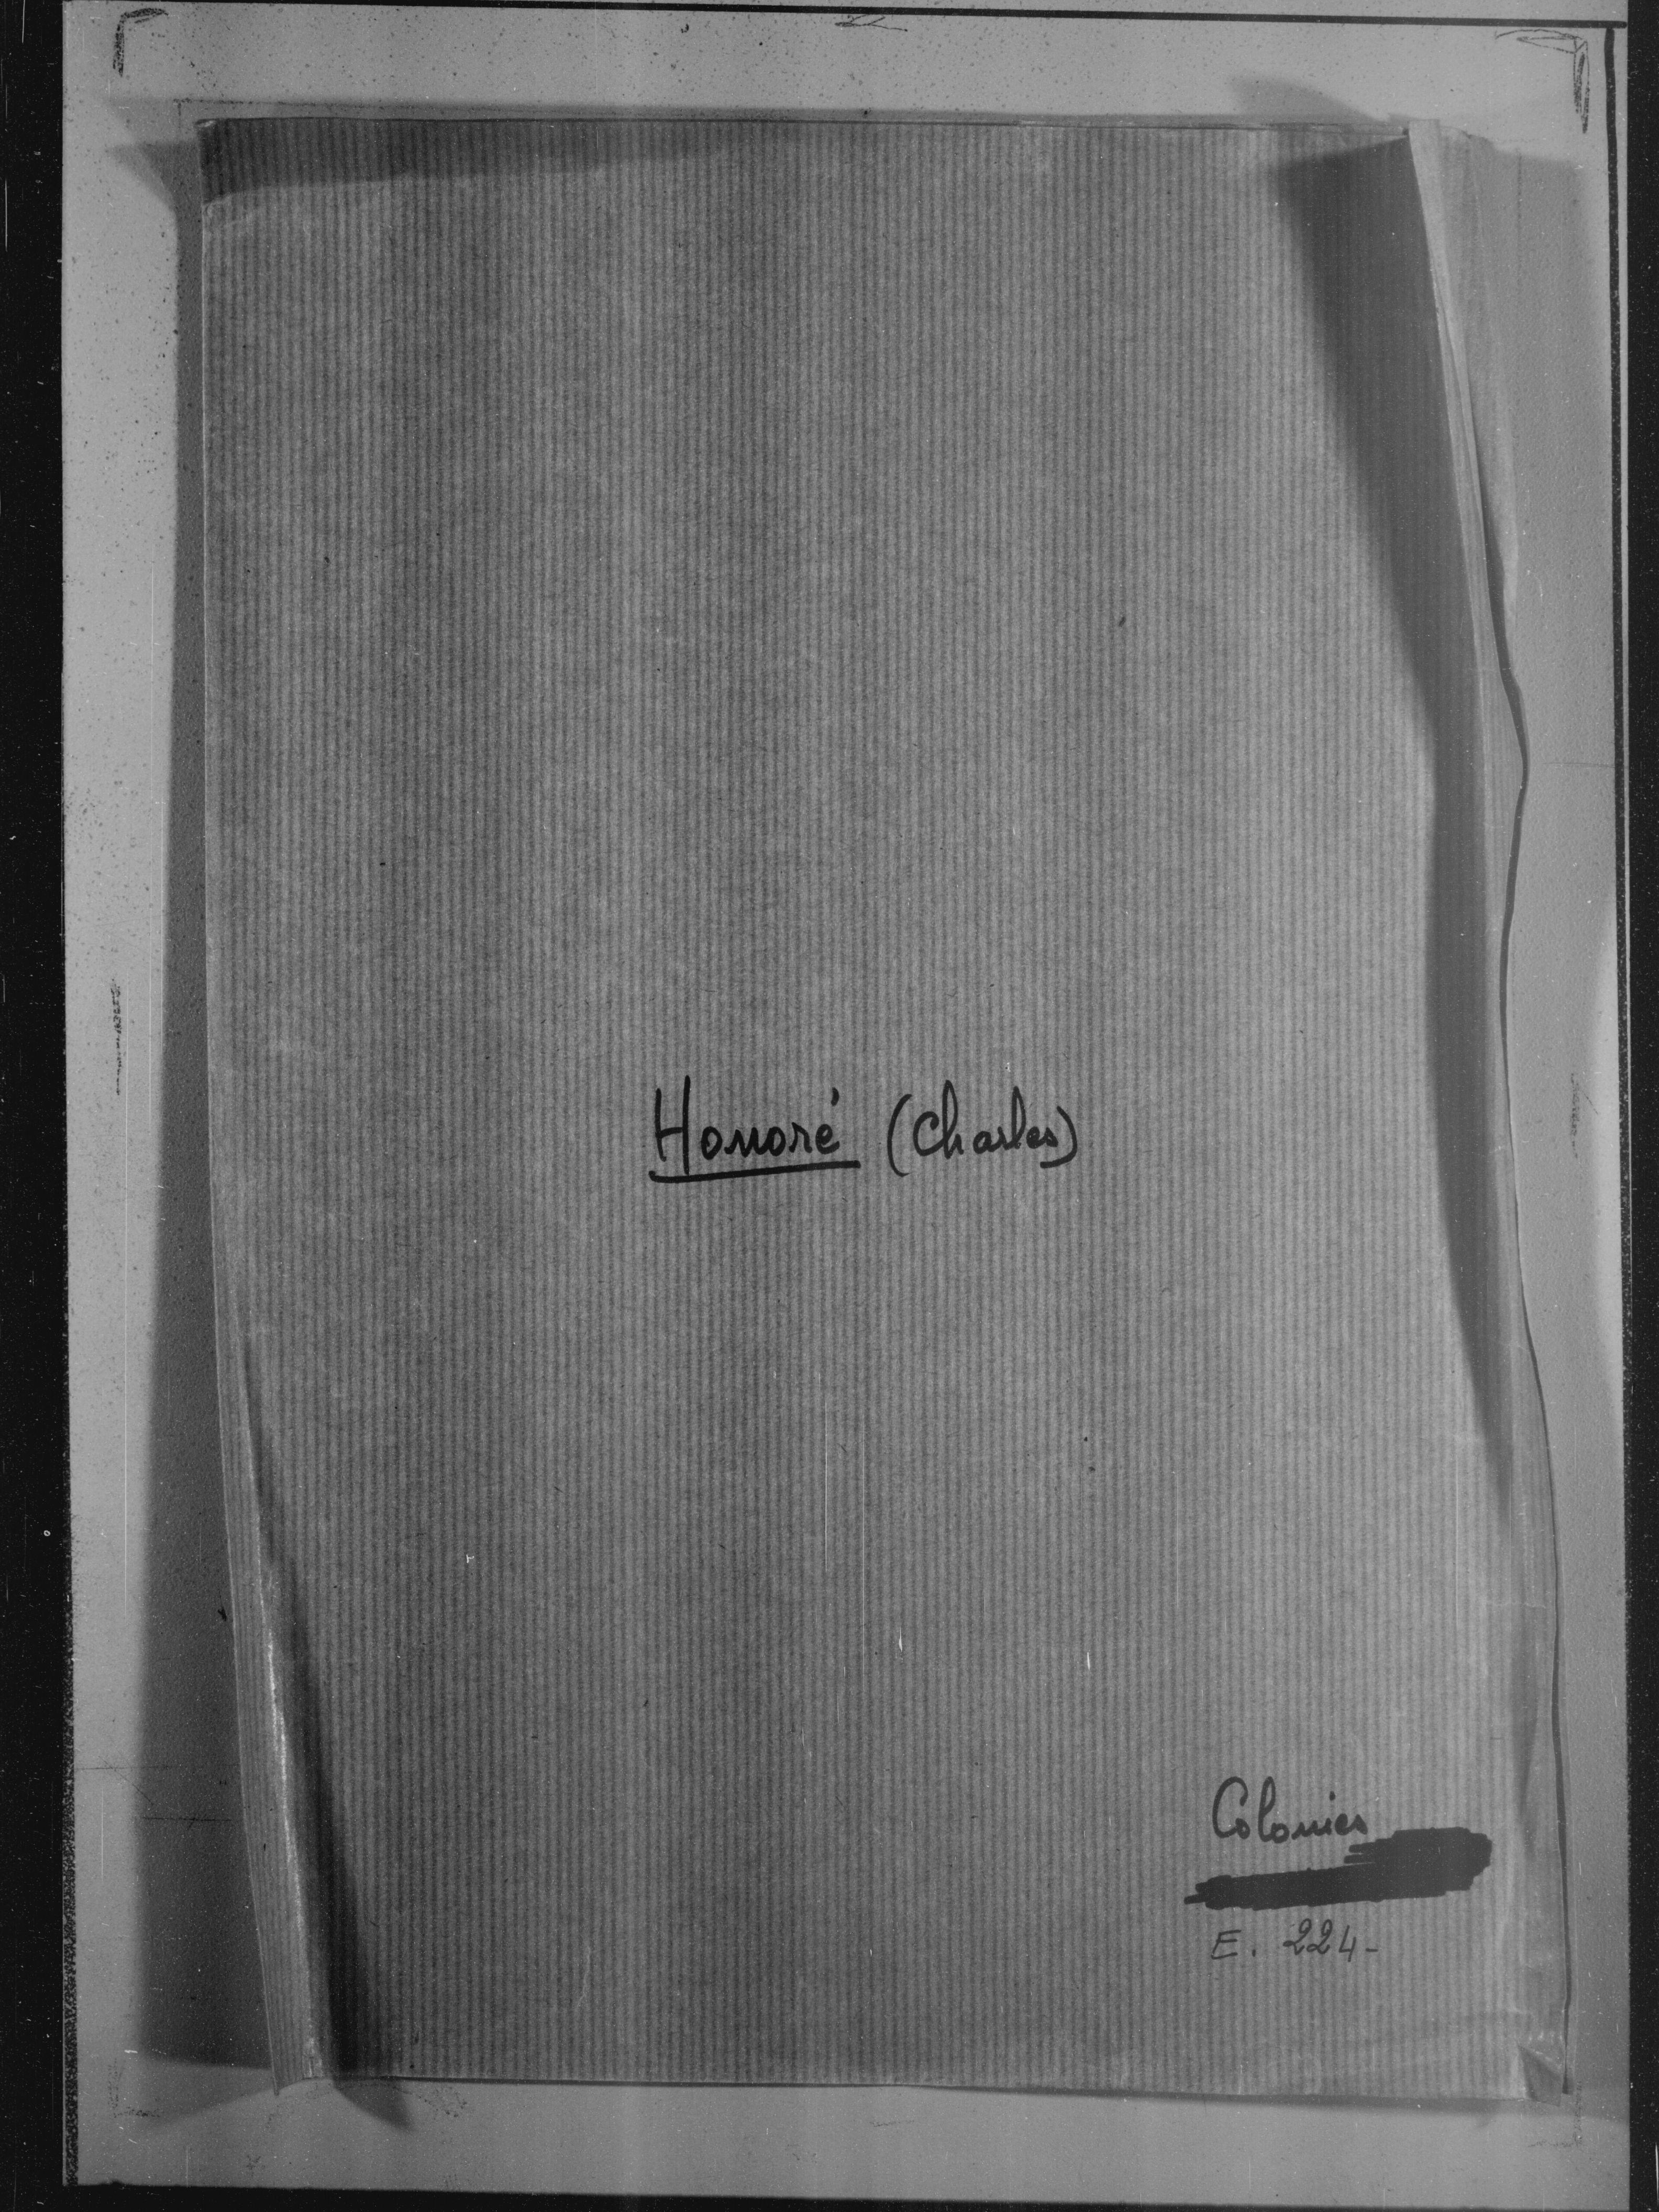 Honoré (Charles)
Colonies
E. 224-